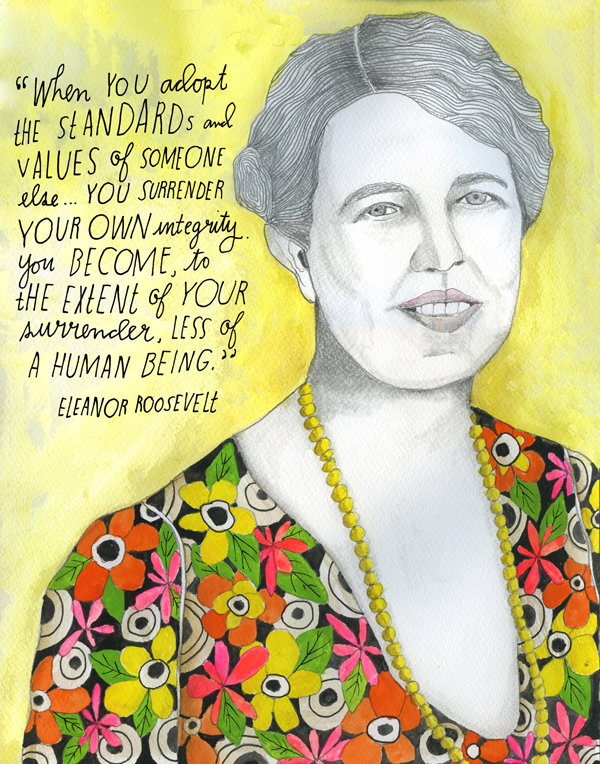 “When YOU adopt
THE StANDARDs and
VALUES of SOMEONE
else... YOU SURRENDER
YOUR OWN integrity.
you BECOME, to
tHE EXTENT of YOUR
surrender, LESS of
A HUMAN BEING.”
ELEANOR ROOSEVELt